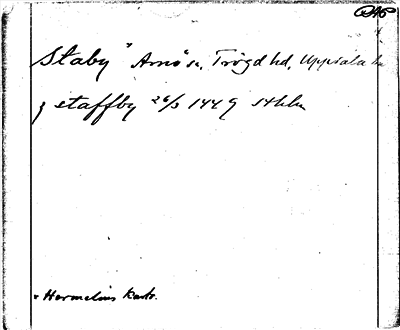 Staby Arnö sn, Trögd hd, Uppsala ln
j staffby 26/3 1449
Hermelins kart.